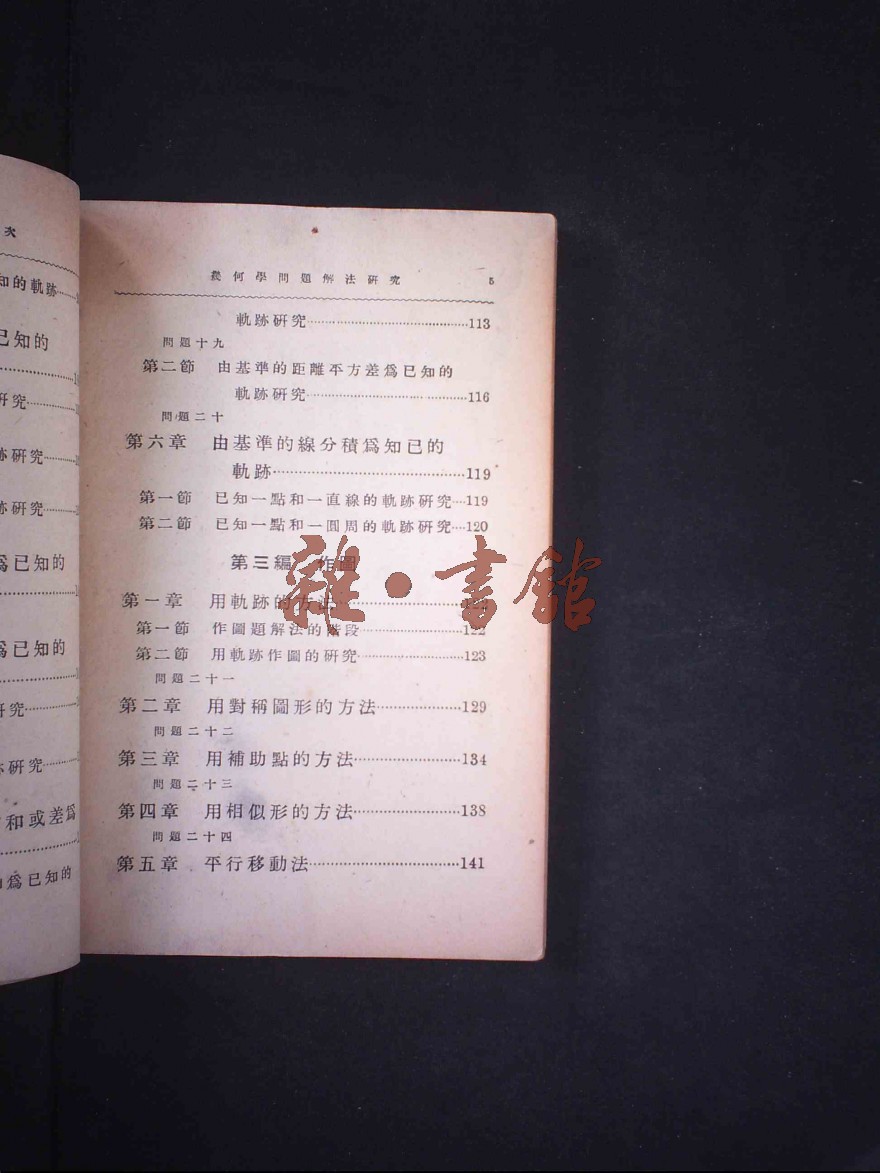 次
知的軌跡
已知的
研究
跡研究
跡研究
爲已知的
爲已知的
研究
跡研究
和或差爲
爲已知的
幾何學問題解法研究 5
軌跡研究 113
問題十九
第二節 由基準的距離平方差爲已知的
軌跡研究 116
問題二十
第六章 由基準的線分積爲知已的
軌跡 119
第一節 已知一點和一直線的軌跡研究 119
第二節 已知一點和一圓周的軌跡研究 120
第三編 作圖
第一章 用軌跡的方法
第一節 作圖題解法的階段 122
第二節 用軌跡作圖的研究 123
問題二十一
第二章 用對稱圖形的方法 129
問題二十二
第三章 用補助點的方法 134
問題二十三
第四章 用相似形的方法 138
問題二十四
第五章 平行移動法 141
雜·書館